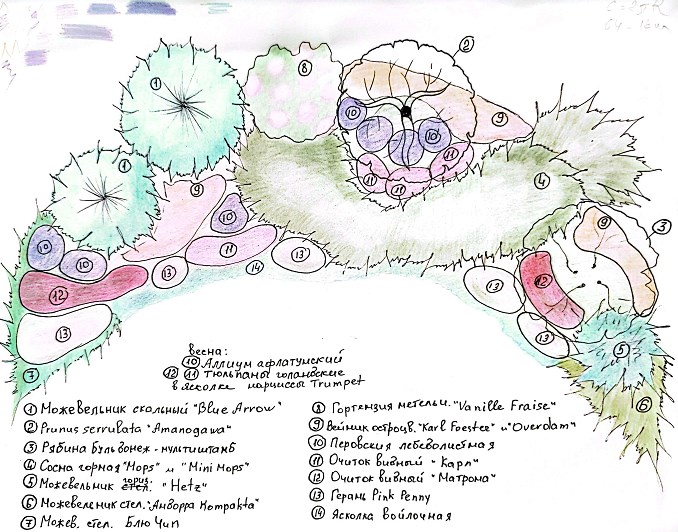 1
8
2
10
10
9
11
11
11
4
1
9
10
10
10
11
13
14
13
12
13
7
9
3
12
13
13
5
6
весна:
10 Аллиум афлатунский
12 11 Тюльпаны голландские
в ясколке нарциссы Trumpet
1 Можевельник скальный "Blue Arrow"
2 Prunus serrulata "Amanogawa"
3 Рябина Бульгонеж-мультиштамб
4 Сосна горная "Mops" и "Mini mops"
5 Можевельник гориз. стел. "Hetz"
6 Можевельник стел. "Андорра Kompakta"
7 Можев. стел. Блю Чип
8 Гортензия метельч. "Vanille Fraise"
9 Вейник остроцв. "Karl Foestce" и "Overdam"
10 Перовския лебеволистная
11 Очиток видный "Карл"
12 Очиток видный "Матрона"
13 Герань Pink Penny
14 Ясколка войлочная